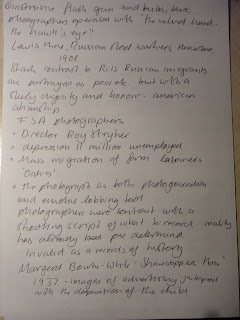 instrusive flash gun and bulbs, these
photographers operated with "the velvet hand,
the hawk's eye"
Lewis Hine, Russian steel workers, Homestead,
1908
Stark contrast to Riis Russian migrants
are portrayed as poor but with a
steely dignity and honour - american
citizenship
FSA photographers
• Director Roy Stryker
• depression 11 million unemployed
• Mass migration of farm labourers
'Oakies'
• the photograph as both
and emotive lobbying tool
photographer were sent out with a
shooting script of what to record - reality
has already been pre determined
invalid as a records of history
Margaret Bourke-White - now'
1937 - images of advertising juxtaposed
with the of the